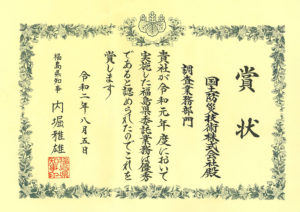 賞状
国土防災技術株式会社殿
調査業務部門
貴社が令和元年度において
実施した福島県委託業務は優秀
であると認められたのでこれを
賞します
令和二年八月五日
福島県知事 内堀雅雄